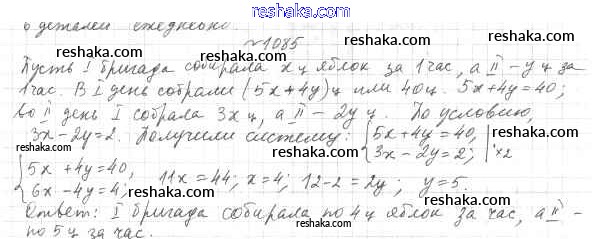 6 деталей ежедневно.
№1085
Пусть I бригада собирала x ц яблок за 1 час, а II - y ц за
1 час. В I день собрали (5x+4y) ц или 40 ц. 5x+4y=40;
Во II день I собрала 3x ц, а II - 2y ц. По условию,
3x-2y=2. Получили систему: {5x+4y=40,
3x-2y=2; |×2
{5x+4y=40,
6x-4y=4; 11x=44; x=4; 12-2=2y; y=5.
Ответ: I бригада собирала по 4 ц яблок за час, а II -
по 5 ц за час.
www.reshaka.com
reshaka.com
reshaka.com
reshaka.com
reshaka.com
reshaka.com
reshaka.com
reshaka.com
reshaka.com
reshaka.com
reshaka.com